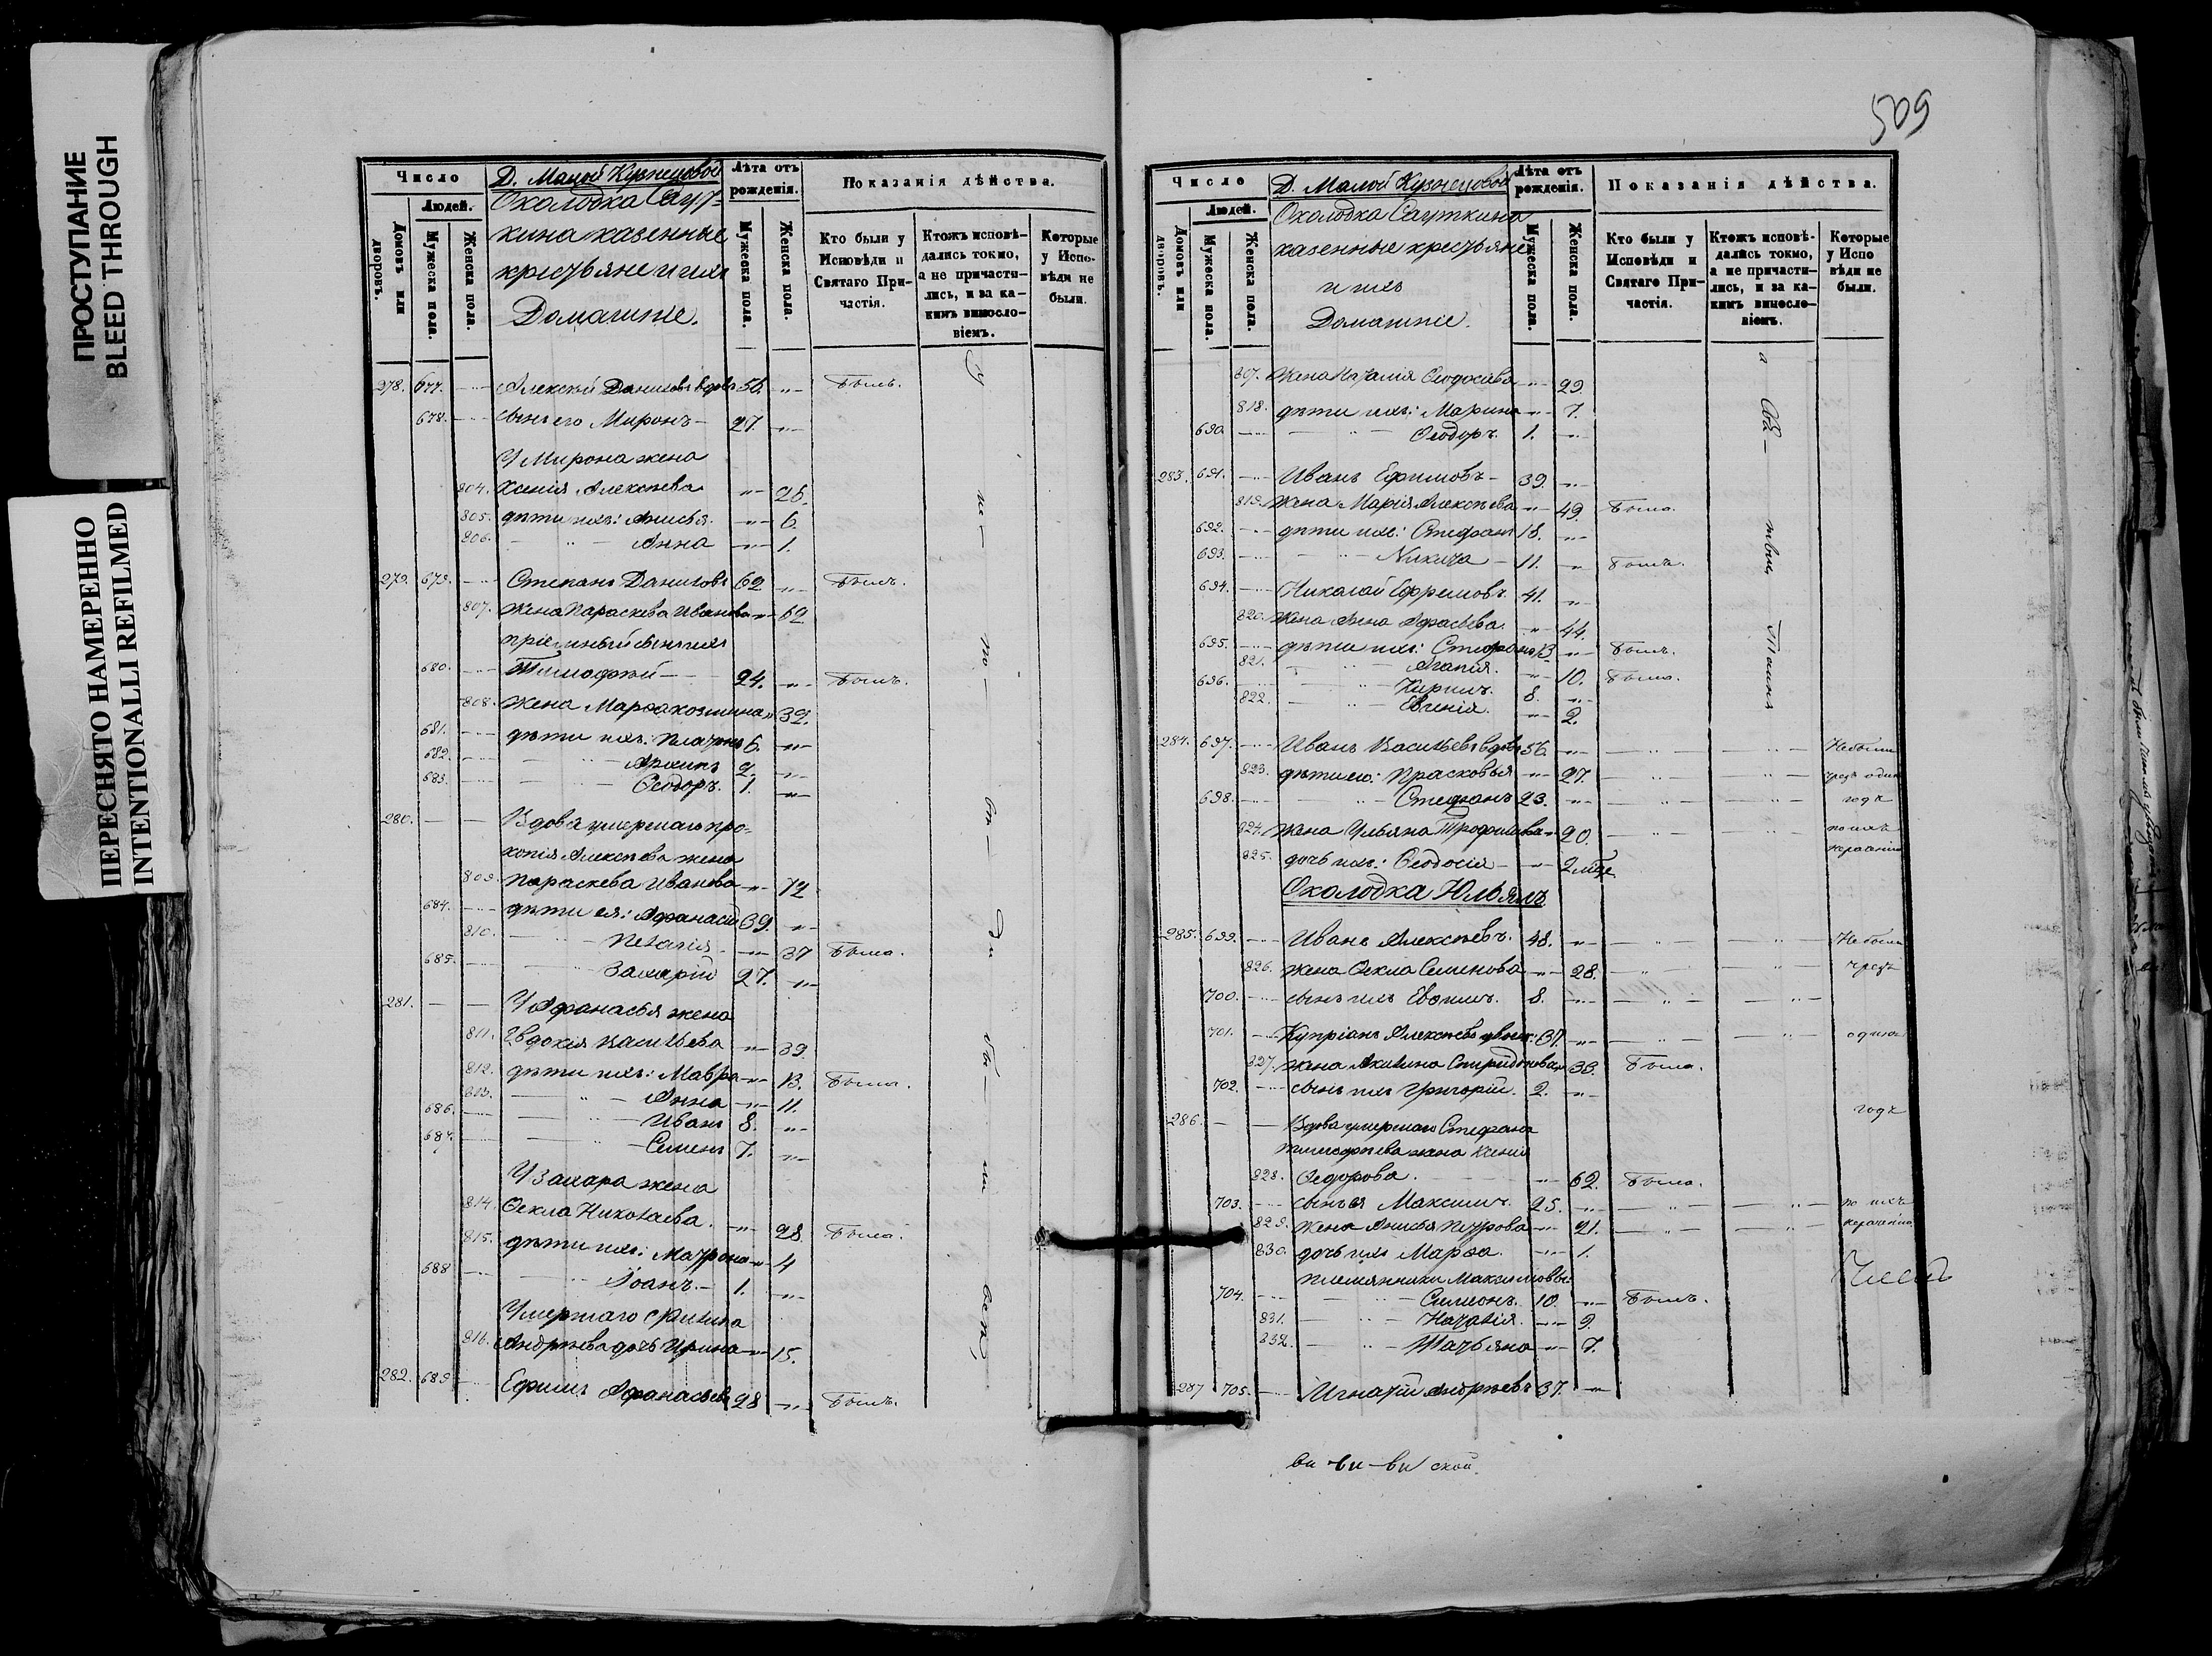 ПРОСТУПАНИЕ
BLEED THROUGH
ПЕРЕСНЯТО НАМЕРЕННО
INTENTIONALLI REFILMED
Число
Людей.
Домовъ или дворовъ.
Мужеска пола.
Женска пола.
Д. Малой Кузнецовой
Околодка Саут-
кина казенные
крестьяне и ихъ
Домашніе.
Лѣта отъ рожденія.
Мужеска пола.
Женска пола.
Показанія дѣйства.
Кто были у Исповѣди и Святаго Причастія.
Ктожъ исповѣдались токмо, а не причастились, и за какимъ винословіемъ.
Которые у Исповѣди не были.
278. 677. Алексѣй Даниловъ вдовъ 56. Былъ.
678. сынъ его Миронъ 27.
У Мирона жена
804. Ксенія Алексѣева 26.
805. дѣти ихъ: Анисья 6.
806. Анна 1.
279. 679. Степанъ Даниловъ 62 Былъ.
807. жена Параскева Иванова 62
пріемный сынъ ихъ
680. Тимофѣй 24. Былъ.
808. жена Марѳа Козмина 32.
681. дѣти ихъ: Платонъ 6.
682. 2.
683. Ѳеодоръ. 1.
280. Вдова умершаго Про-
копія Алексѣева жена
809. Параскева Иванова 72
684. дѣти ея: Афанасій 39.
810. Пелагія 37 Была.
685. Захарій 27.
281. У Афанасья жена
811. Евдокія Васильева 39.
812. дѣти ихъ: Мавра 13. Была.
813. Анна 11.
686. Иванъ 8.
687. Семенъ 7.
У Захара жена
814. Ѳекла Николаева. 28. Была.
815. дѣти ихъ: Матрона 4
688 Іоаннъ. 1.
Умершаго Филипа
816. Андрѣева дочь Ирина 15.
282. 689 Ефимъ Афанасьевъ 28 Былъ.
509
Число
Людей.
Домовъ или дворовъ.
Мужеска пола.
Женска пола.
Д. Малой Кузнецовой
Околодка Сауткина
казенные крестьяне
и ихъ
Домашніе.
Лѣта отъ рожденія.
Мужеска пола.
Женска пола.
Показанія дѣйства.
Кто были у Исповѣди и Святаго Причастія.
Ктожъ исповѣдались токмо, а не причастились, и за какимъ винословіемъ.
Которые у Исповѣди не были.
817. жена Наталія Ѳеодосѣева 29.
818. дѣти ихъ: Марина 7.
690. Ѳеодоръ. 1.
283. 691. Иванъ Ефимовъ 39.
819. жена Марія Алексѣева 49. Была.
692. дѣти ихъ: Стефанъ 18.
693. Никита 11. Былъ.
694. Николай Ефремовъ 41.
820. жена Анна 44.
695. дѣти ихъ: Стефанъ 13 Былъ.
821. Агапія. 10. Была.
696. Кирилъ. 8.
822. Евгенія. 2.
284. 697. Иванъ Васильевъ вдовъ 56. Небыли
823. дѣти его: Прасковья 27. чрезъ одинъ
698. Стефанъ 23. годъ
824. жена Ульяна Трофимова 20. по ихъ
825. дочь ихъ: Ѳеодосія 2 мѣс. нераденію
Околодка Юльялъ
285. 699. Иванъ Алексѣевъ. 48. Небыли
826. жена Ѳекла Семенова 28. чрезъ
700. сынъ ихъ Евѳимъ. 8.
701. Купріанъ Алексѣевъ 37. одинъ
827. жена Акилина Спиридонова 33. Была.
702. сынъ ихъ Григорій. 2.
годъ
286. Вдова умершаго Стефана
Тимофѣева жена Ксенія
828. Ѳедорова. 62. Была.
703. сынъ ея Максимъ. 25. по ихъ
829. жена Анисья Петрова 21. нераденію
830. дочь ихъ Марѳа. 1.
племянники Максимовы:
704. Симеонъ. 10. Былъ.
831. Наталія. 9.
832. Татьяна 7.
287 705. Игнатій Андрѣевъ 37.